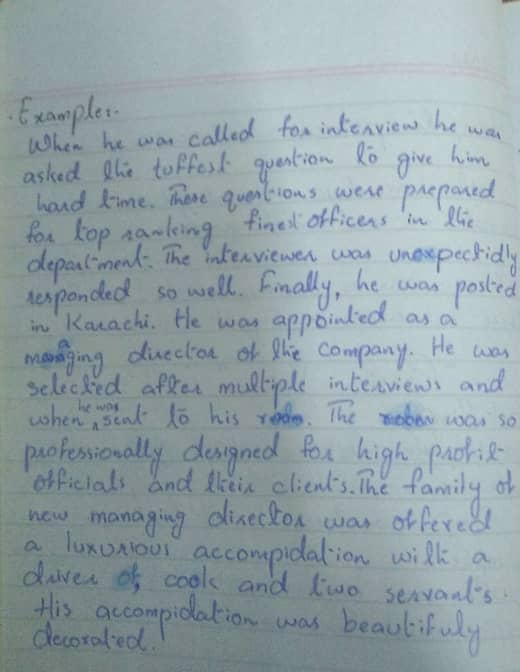 Example:-
When he was called for interview he was
asked the toffest question to give him
hard time. These questions were prepared
for top ranking finest officers in the
department. The interviewer was unexpectidly
responded so well. Finally, he was posted
in Karachi. He was appointed as a
managing director of the company. He was
selected after multiple interviews and
when he was sent to his room. The room was so
professionally designed for high profil
officials and their clients. The family of
new managing director was offered
a luxurious accompidation with a
driver of, cook and two servants.
His accompidation was beautifuly
decorated.